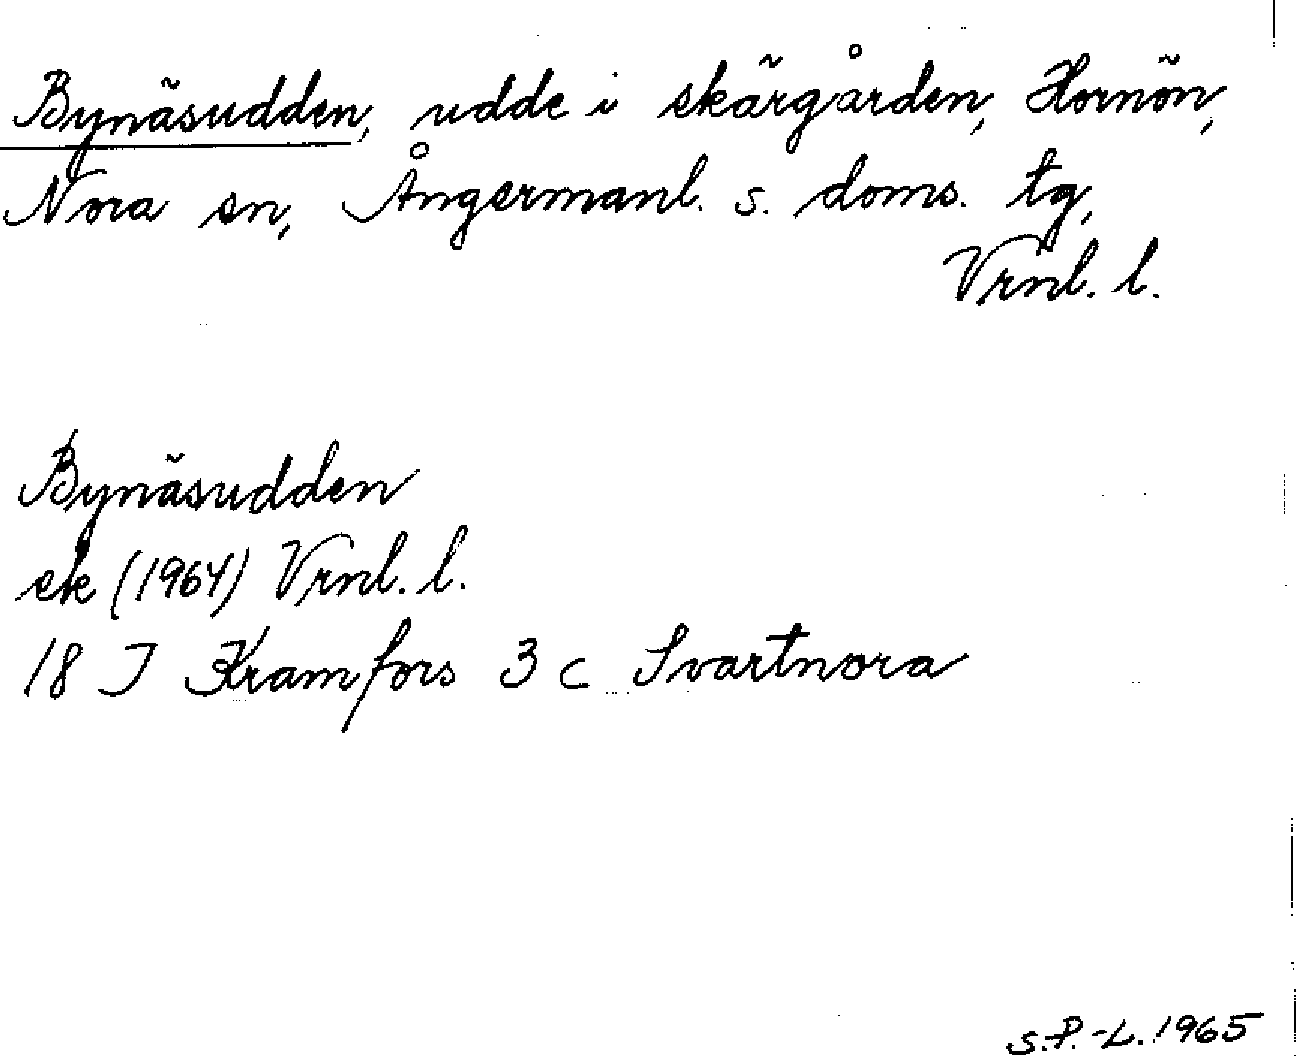 Bynäsudden, udde i skärgården, Hornön,
Nora sn, Ångermanl. s. doms. tg,
Vrnl. l.
Bynäsudden
ek (1964) Vrnl. l.
18 J Kramfors 3 c Svartnora
S.P.-L. 1965